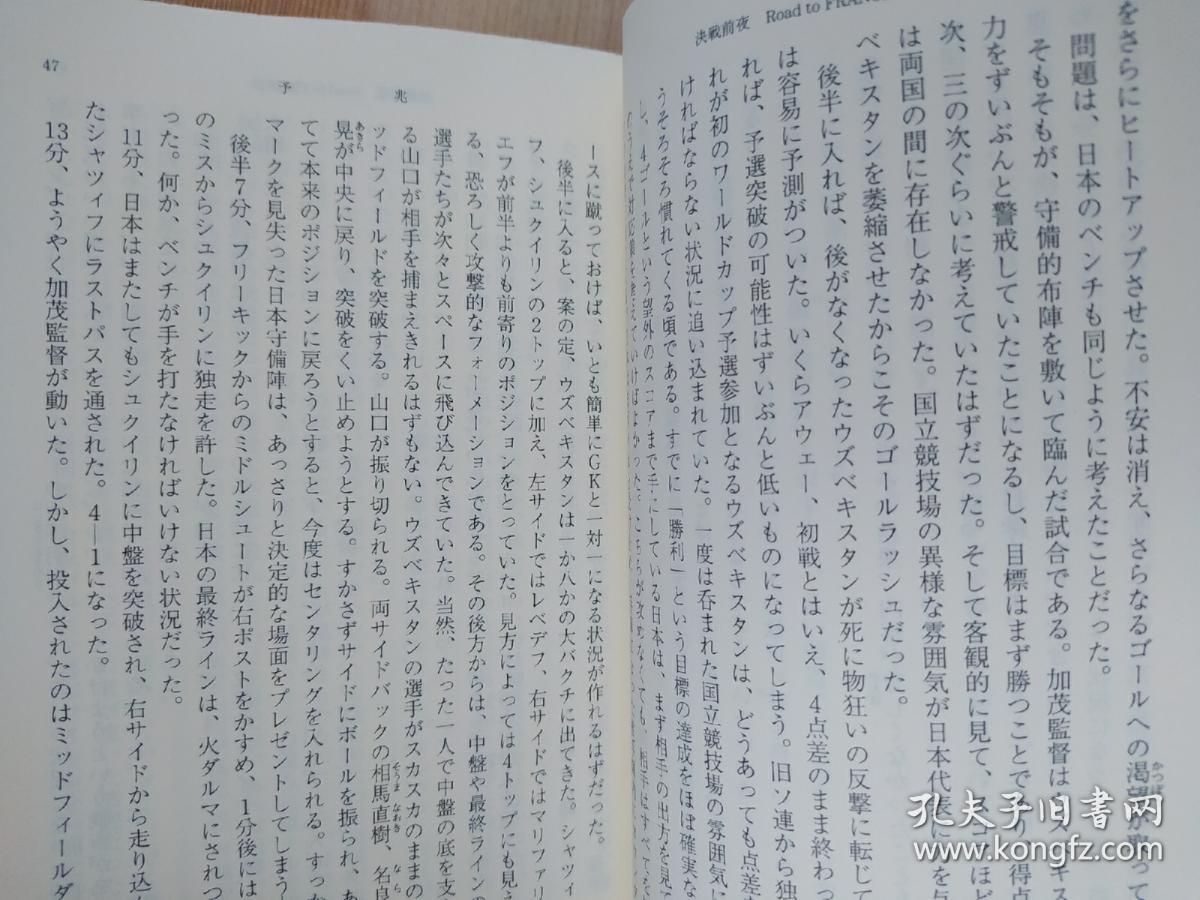 決戦前夜 Road to FRANC
をさらにヒートアップさせた。不安は消え、さらなるゴールへの渇望が取って
かつぼう
問題は、日本のベンチも同じように考えたことだった。
そもそもが、守備的布陣を敷いて臨んだ試合である。加茂監督はウズベキス
力をずいぶんと警戒していたことになるし、目標はまず勝つことであり、得点
次、三の次ぐらいに考えていたはずだった。そして客観的に見て、スコアほど
は両国の間に存在しなかった。国立競技場の異様な雰囲気が日本代表に力を与
ベキスタンを萎縮させたからこそのゴールラッシュだった。
後半に入れば、後がなくなったウズベキスタンが死に物狂いの反撃に転じて
は容易に予測がついた。いくらアウェー、初戦とはいえ、4点差のまま終わっ
れば、予選突破の可能性はずいぶんと低いものになってしまう。旧ソ連から独
れが初のワールドカップ予選参加となるウズベキスタンは、どうあっても点差
ければならない状況に追い込まれていた。一度は呑まれた国立競技場の雰囲気に
うそろそろ慣れてくる頃である。すでに「勝利」という目標の達成をほぼ確実な
し、4ゴールという望外のスコアまで手にしている日本は、まず相手の出方を見て
47
予兆
ースに蹴っておけば、いとも簡単にGKと一対一になる状況が作れるはずだった。
後半に入ると、案の定、ウズベキスタンは一か八かの大バクチに出てきた。シャツィ
フ、シュクイリンの2トップに加え、左サイドではレベデフ、右サイドではマリファリ
エフが前半よりも前寄りのポジションをとっていた。見方によっては4トップにも見え
る、恐ろしく攻撃的なフォーメーションである。その後方からは、中盤や最終ラインの
選手たちが次々とスペースに飛び込んできていた。当然、たった一人で中盤の底を支
る山口が相手を捕まえきれるはずもない。ウズベキスタンの選手がスカスカのままの
ッドフィールドを突破する。山口が振り切られる。両サイドバックの相馬直樹、名良
そうま なおき なら
晃が中央に戻り、突破をくい止めようとする。すかさずサイドにボールを振られ、あ
あきら
てて本来のポジションに戻ろうとすると、今度はセンタリングを入れられる。すっ
マークを見失った日本守備陣は、あっさりと決定的な場面をプレゼントしてしまう
後半7分、フリーキックからのミドルシュートが右ポストをかすめ、1分後には
のミスからシュクイリンに独走を許した。日本の最終ラインは、火ダルマにされつ
った。何か、ベンチが手を打たなければいけない状況だった。
11分、日本はまたしてもシュクイリンに中盤を突破され、右サイドから走り込
たシャツィフにラストパスを通された。4―1になった。
13分、ようやく加茂監督が動いた。しかし、投入されたのはミッドフィールダ
孔夫子旧书网
www.kongfz.com